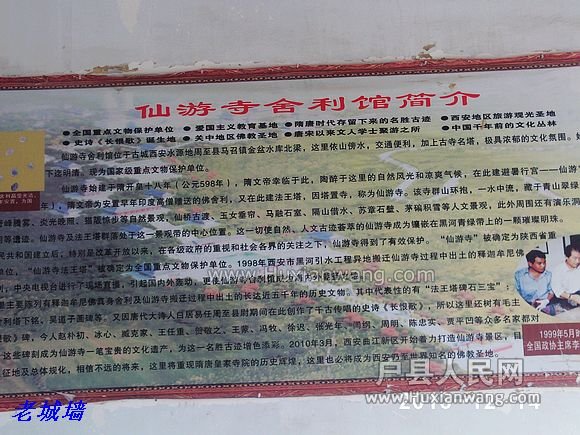 仙游寺舍利馆简介
●全国重点文物保护单位 ●爱国主义教育基地 ●隋唐时代存留下来的名胜古迹 ●西安地区旅游观光圣地
●史诗《长恨歌》诞生地 ●关中地区佛教圣地 ●唐宋以来文人学士聚游之所 ●中国千年前的文化丛林
仙游寺舍利馆位于古城西安水源地周至县马召镇金盆水库北梁，这里依山傍水，交通便利，加上古寺名塔，极具浓郁的文化氛围。
下迄明清。现为国家级重点文物保护单位。
仙游寺始建于隋开皇十八年（公元598年），隋文帝幸临于此，陶醉于这里的自然风光和凉爽气候，在此建避暑行宫——仙游
，隋文帝为安置早年印度高僧赠送的佛舍利，又在此建法王塔，因塔置寺，称为仙游寺。该寺群山环抱，一水中流，藏于青山翠绿
峰腾雾、炎光晚照、猎蔽惊步等自然景观，仙桥古渡、玉女垂帘、马融石室、隔山借水、苏章石壁、茅碥积雪等人文景观，此外周围还有清庙
等遗迹。仙游寺及法王塔群落处于这一景观带的中心位置，这一切使自然、人文古迹荟萃的仙游寺成为镶嵌在黑河青绿带上的一颗璀璨明珠。
民共和国建立后，特别是改革开放以来，在各级政府的重视和社会各界的关注之下，仙游寺得到了有效保护。“仙游寺”被确定为陕西省重
单位，“仙游寺法王塔”被确定为全国重点文物保护单位。1998年西安市黑河引水工程异地搬迁仙游寺过程中出土的释迦牟尼佛
利，中央电视台进行了现场直播，引起国内外轰动，更使仙游寺
主要陈列有释迦牟尼佛真身舍利及仙游寺搬迁过程中出土的长达近五千年的历史文物。其中代表性的有“法王塔碑石三宝”：
利塔下铭、吴道子画碑等。又因唐代大诗人白居易任周至县尉期间在此创作了千古传唱的史诗《长恨歌》，所以这里还树有毛主
歌》碑，今人赵朴初、冰心、臧克家、王任重、但敬之、王蒙、冯牧、徐迟、张光年、周明、陈忠实、贾平凹等众多名家都对
这些碑刻成为仙游寺一笔宝贵的文化遗产，为这一名胜古迹增色添彩。2010年3月，西安曲江新区开始着力打造仙游寺景区，目
征地及总体规化，相信不远的将来，这里将重现隋唐皇家寺院的历史辉煌，这里也必将成为西安乃至世界知名的佛教圣地。
1999年5月
全国政协主席李
户县人民网
www.Huxianwang.com
老城墙